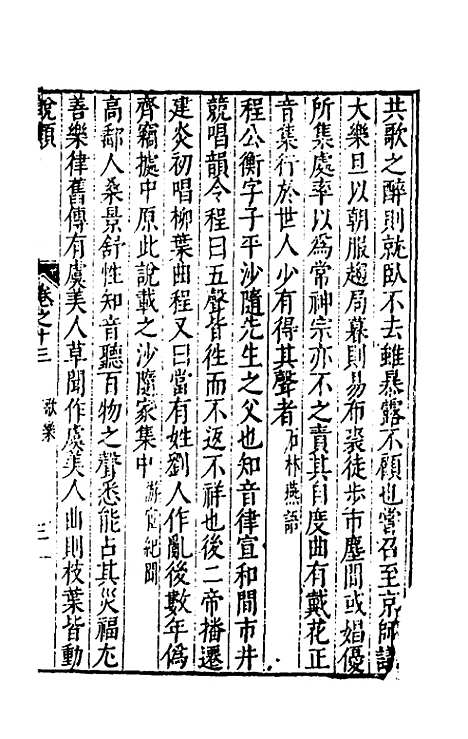 共歌之醉則就臥不去雖暴露不顧也嘗召至京師議
大樂旦以朝服趨局暮則易布裘徒步市廛間或娼優
所集處率以為常神宗亦不之責其自度曲有戴花正
音集行於世人少有得其聲者石林燕語
程公衡字子平沙隨先生之父也知音律宣和間市井
競唱韻令程曰五聲皆徃而不返不祥也後二帝播遷
建炎初唱柳葉曲程又曰當有姓劉人作亂後數年偽
齊竊據中原此說載之沙隨家集中游宦紀聞
高郵人桑景舒性知音聽百物之聲悉能占其災福尤
善樂律舊傳有虞美人草聞作虞美人曲則枝葉皆動
說類
卷之十三
歌樂
三